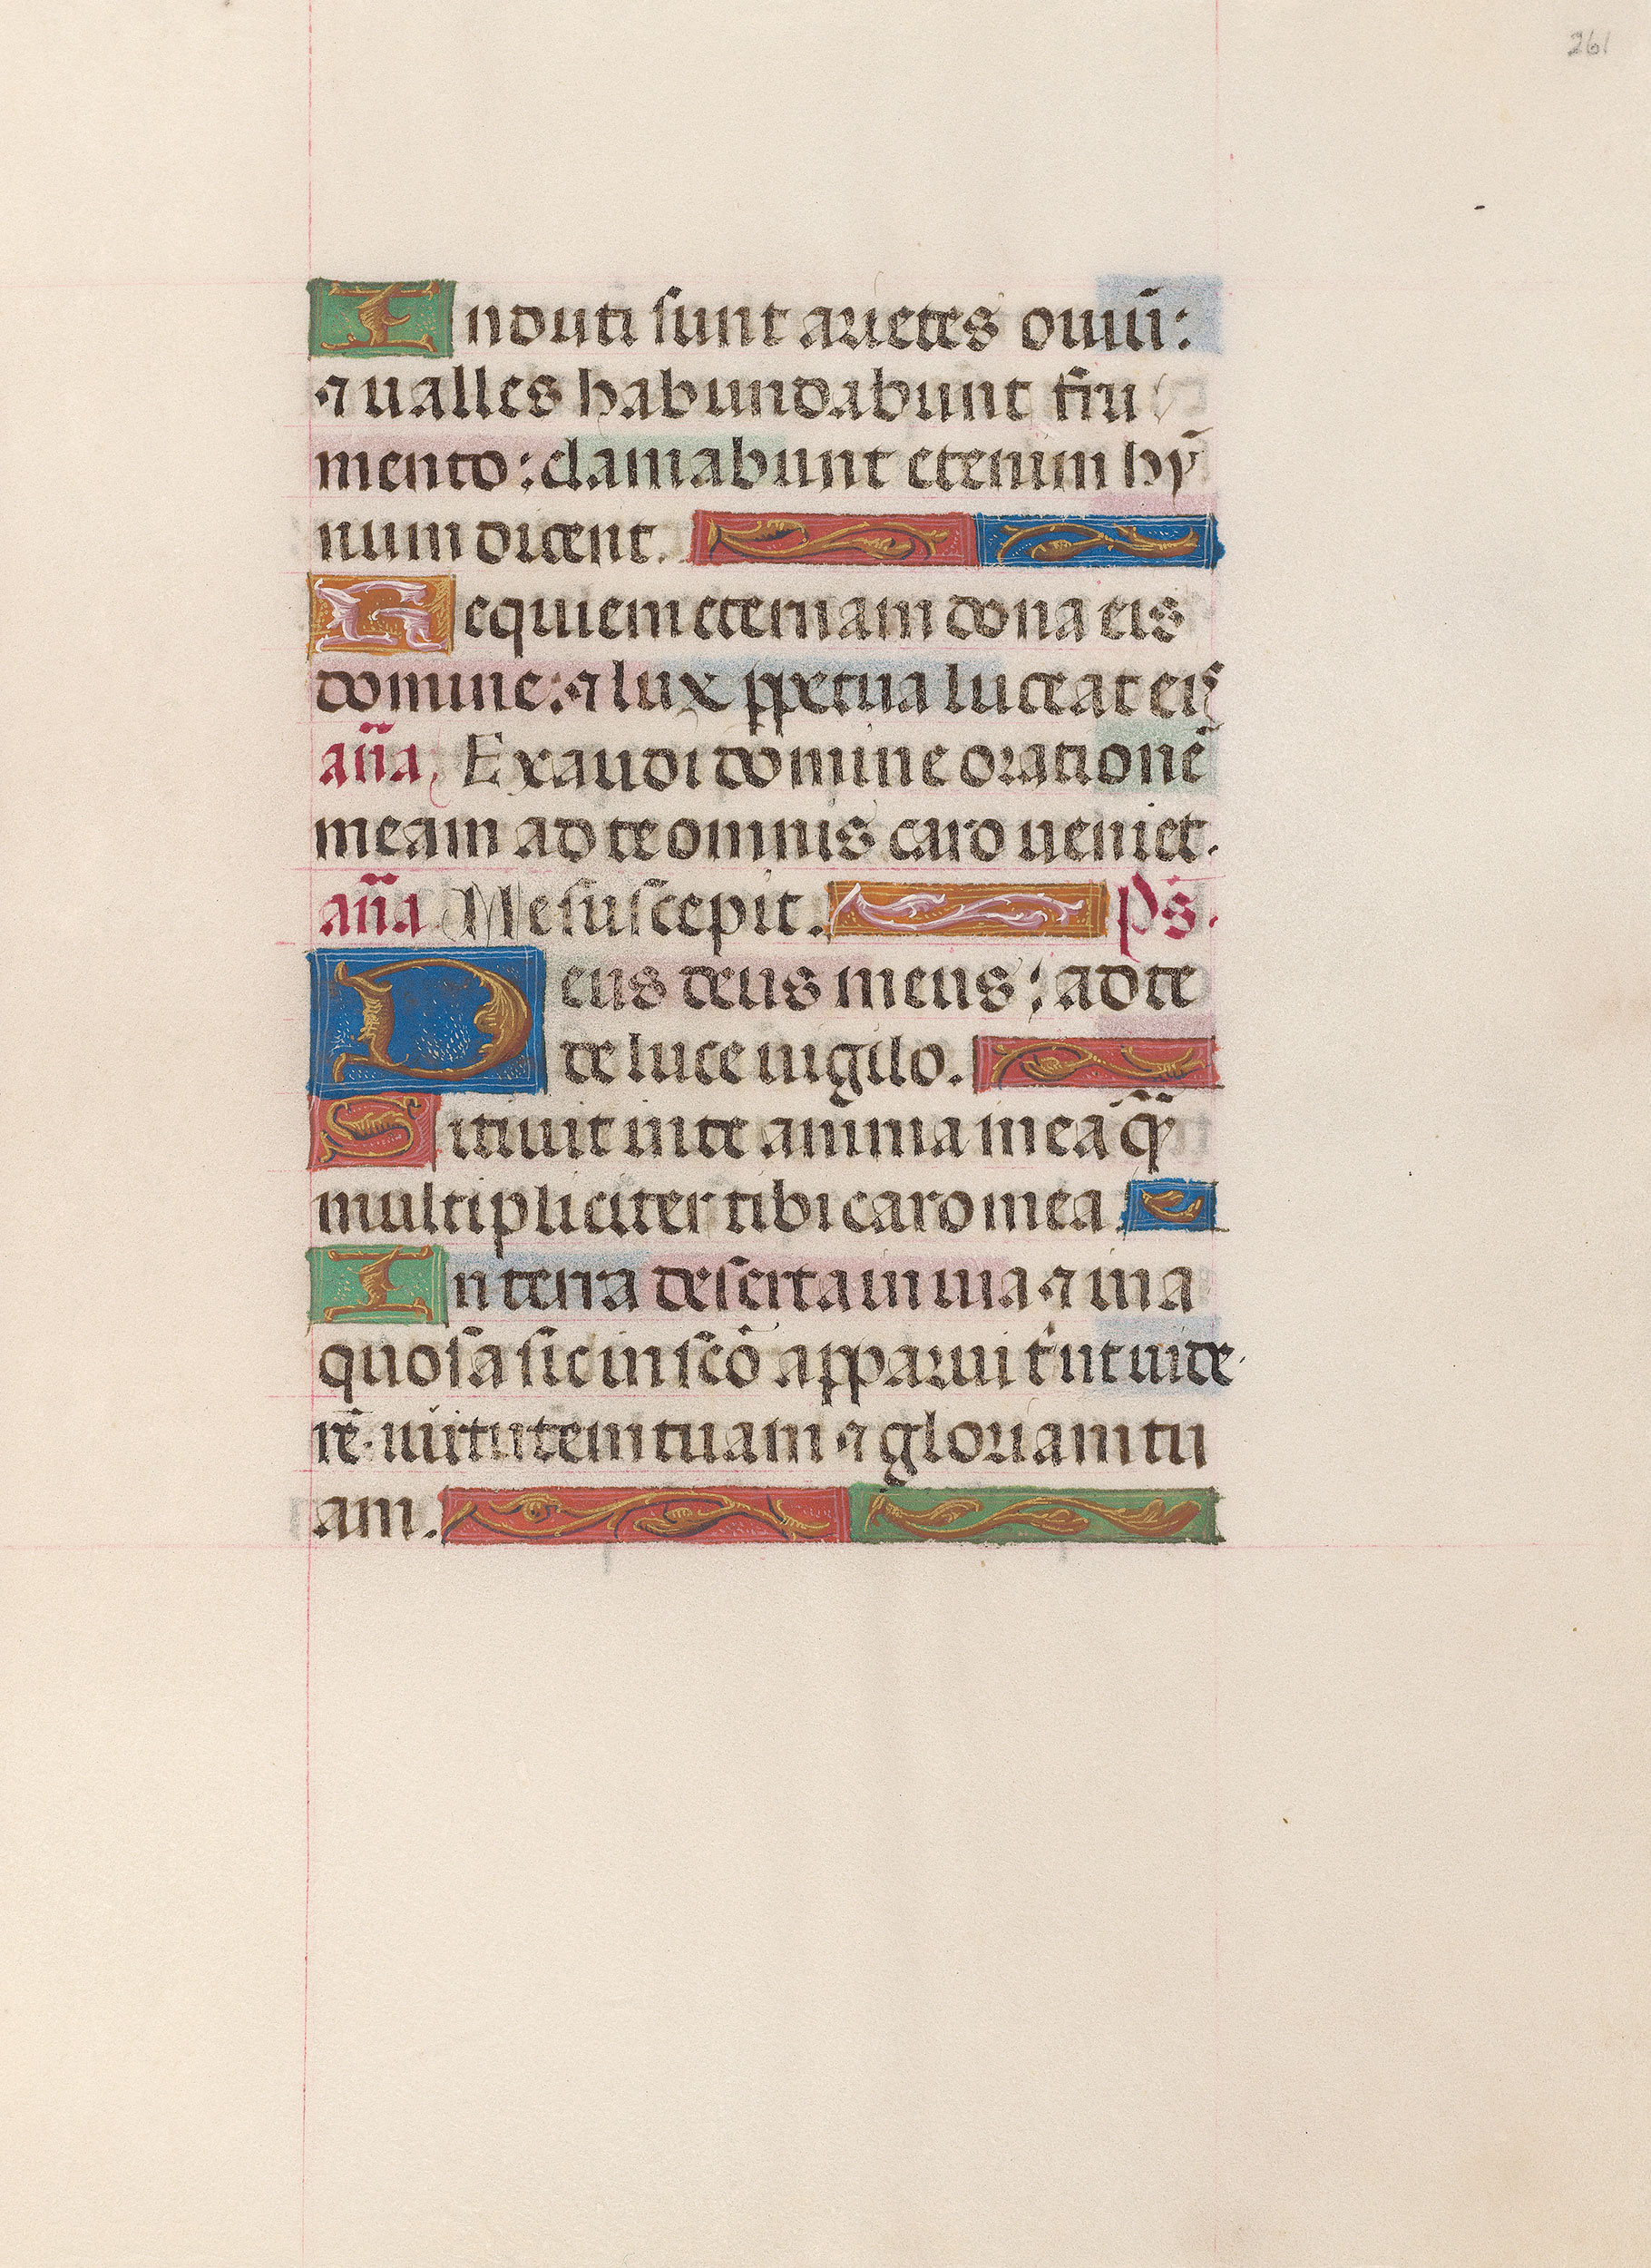 261
Induti sunt arietes ouiũ:
⁊ ualles habundabunt fru
mento: clamabunt etenim hỹ
num dicent.
Requiem eternam dona eis
domine: ⁊ lux ꝑpetua luceat eis
añã. Exaudi domine orationẽ
meam ad te omnis caro ueniet.
añã Me suscepit. Ps.
Deus deus meus: ad te
de luce uigilo.
Sitiuit in te anima mea q̃
multipliciter tibi caro mea.
In terra deserta inuia ⁊ ina
quosa sic in scõ apparui t' ut uide
rẽ uirtutem tuam ⁊ gloriam tu
am.